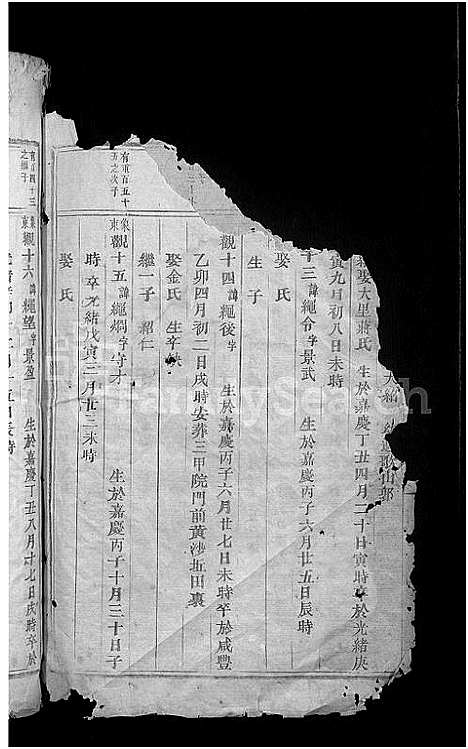 娶大里蔣氏 生於嘉慶丁丑四月二十日寅時卒於光緒庚
寅九月初八日未時
十三諱繩令字景武 生於嘉慶丙子六月廿五日辰時
娶氏
生子
觀十四諱繩後字 生於嘉慶丙子六月廿七日未時卒於咸豐
乙卯四月初二日戌時安葬三甲院門前黃沙坵田裏
娶金氏 生卒缺
繼一子 紹仁
有重百五十
五之次子
象東觀十五諱繩烱字守才 生於嘉慶丙子十月三十日子
時卒光緒戊寅三月廿三未時
娶氏
四十三
之
象東觀十六諱繩望字景盈 生於嘉慶丁丑八月十七日戌時卒於